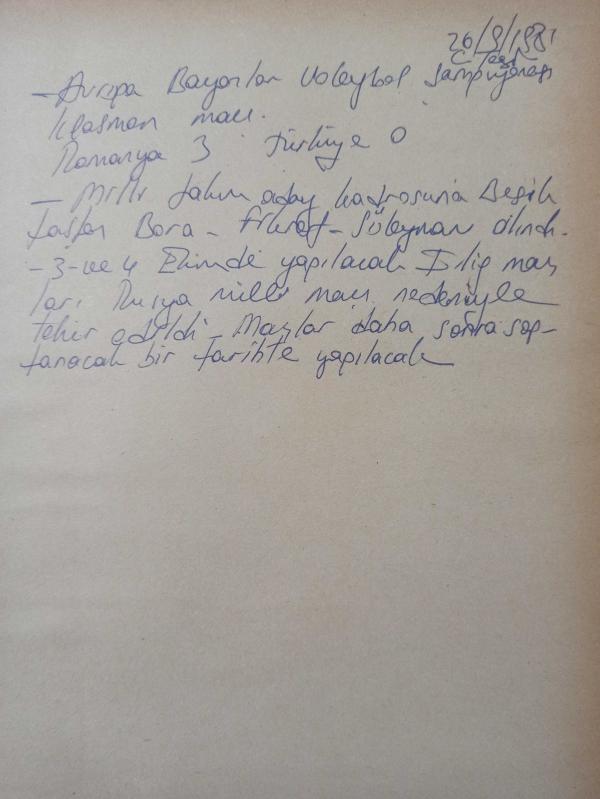 26/9/1981
C. Test
- Avrupa Bayanlar Voleybol Şampiyonası
klasman maçı.
Romanya 3 Türkiye 0
- Milli takım aday kadrosuna Beşik
taştan Bora - Fikret - Süleyman alındı.
- 3-ve 4 Ekimde yapılacak I. lig maç
ları Rusya milli maçı nedeniyle
tehir edildi - Maçlar daha sonra sap-
tanacak bir tarihte yapılacak